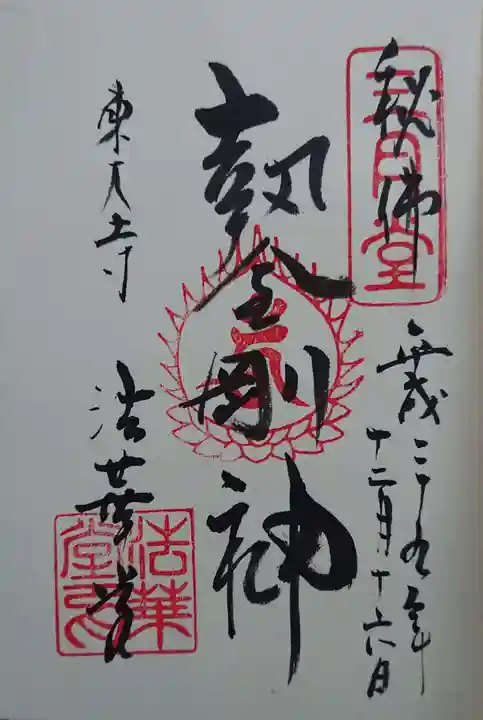 秘佛
平成二十九年
十二月十六日
執金剛神
東大寺
法華堂
三月堂
法華堂印